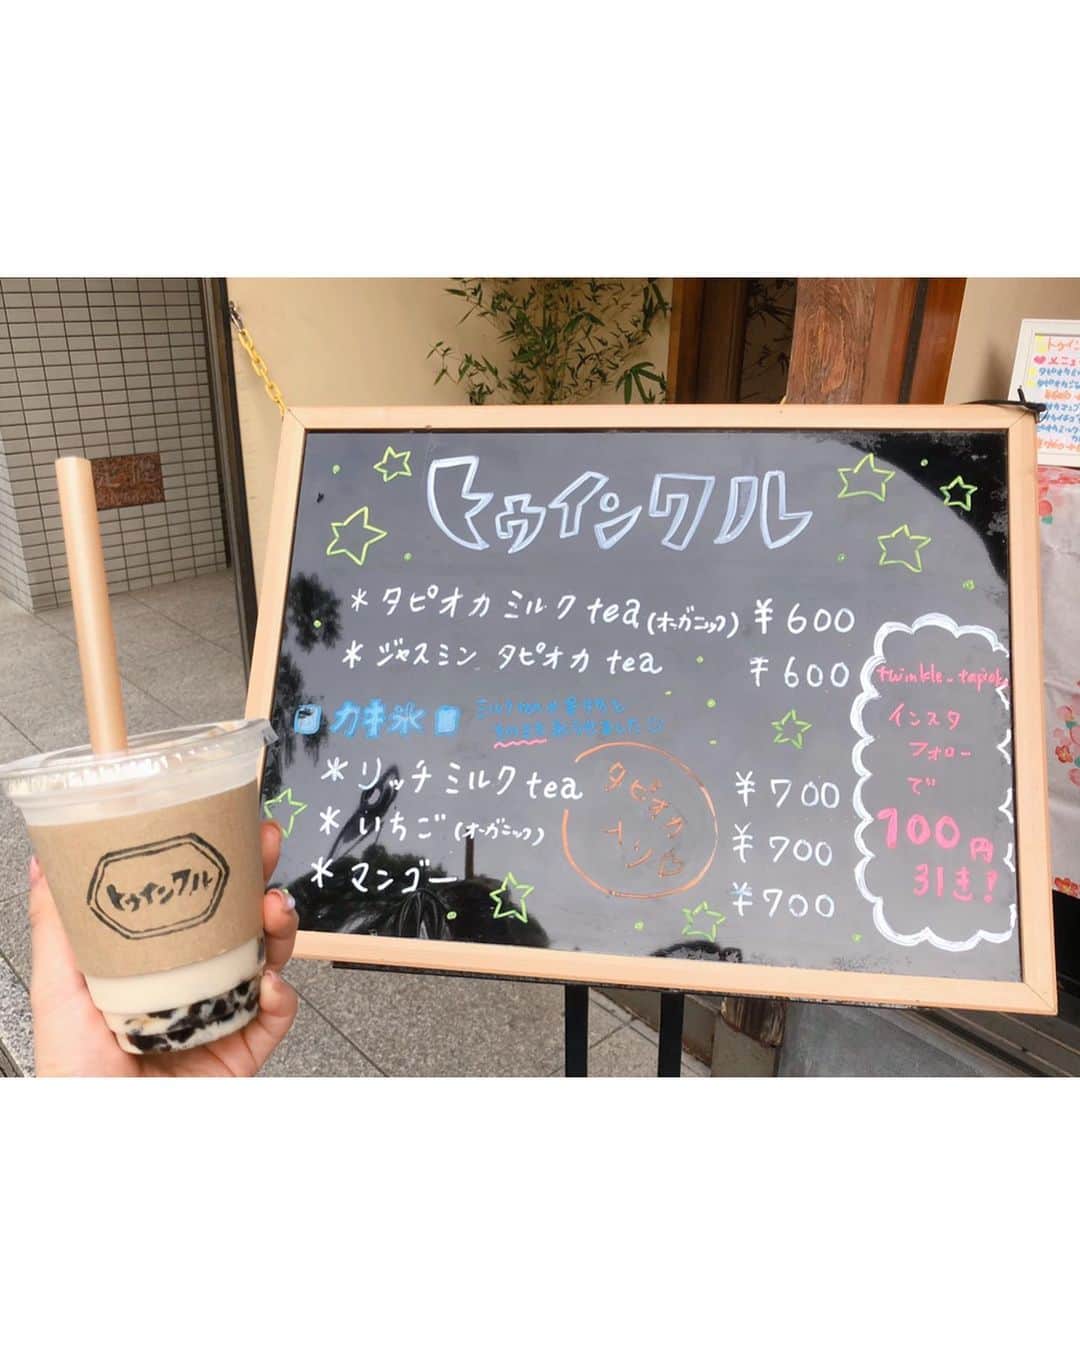 トゥインクル
＊タピオカミルクtea(オーガニック) ¥600
＊ジャスミン タピオカ tea ¥600
カキ氷
＊リッチミルクtea ¥700
＊いちご(オーガニック) ¥700
＊マンゴー ¥700
タピオカ
イン
twinkle_tapiok
インスタ
フォロー
で
100円
引き！
トゥインクル